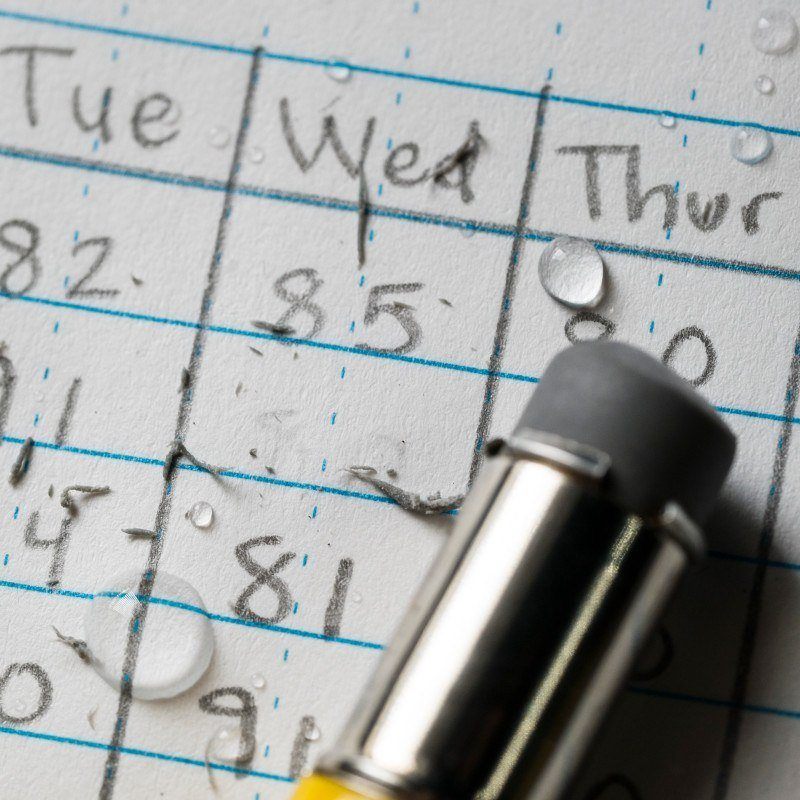 Tue Wed Thur
82 85 0
1
4 81
0 91